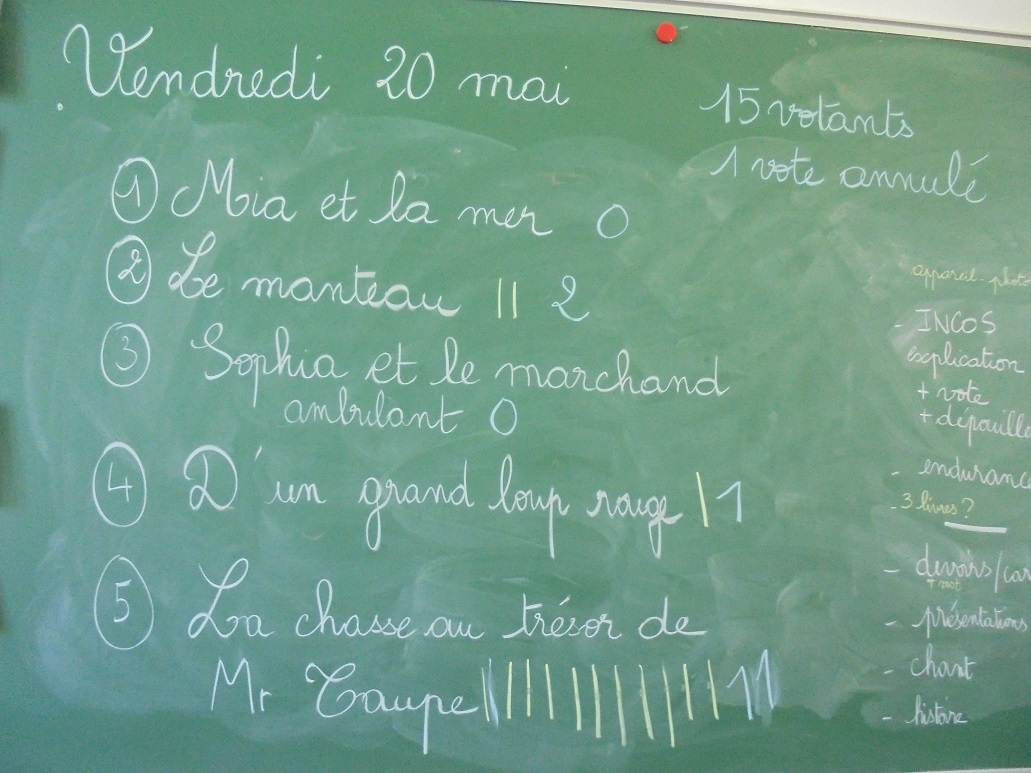 Vendredi 20 mai
15 votants
1 vote annulé
1 Mia et la mer 0
2 Le manteau || 2
3 Sophia et le marchand
ambulant 0
4 D'un grand loup rouge | 1
5 La chasse au trésor de
Mr Taupe ||||||||||| 11
appareil-photo
- INCOS
explication
+ vote
+ dépouille
- endurance
- 3 livres ?
- devoirs/car
+ mot
- présentations
- chant
- histoire